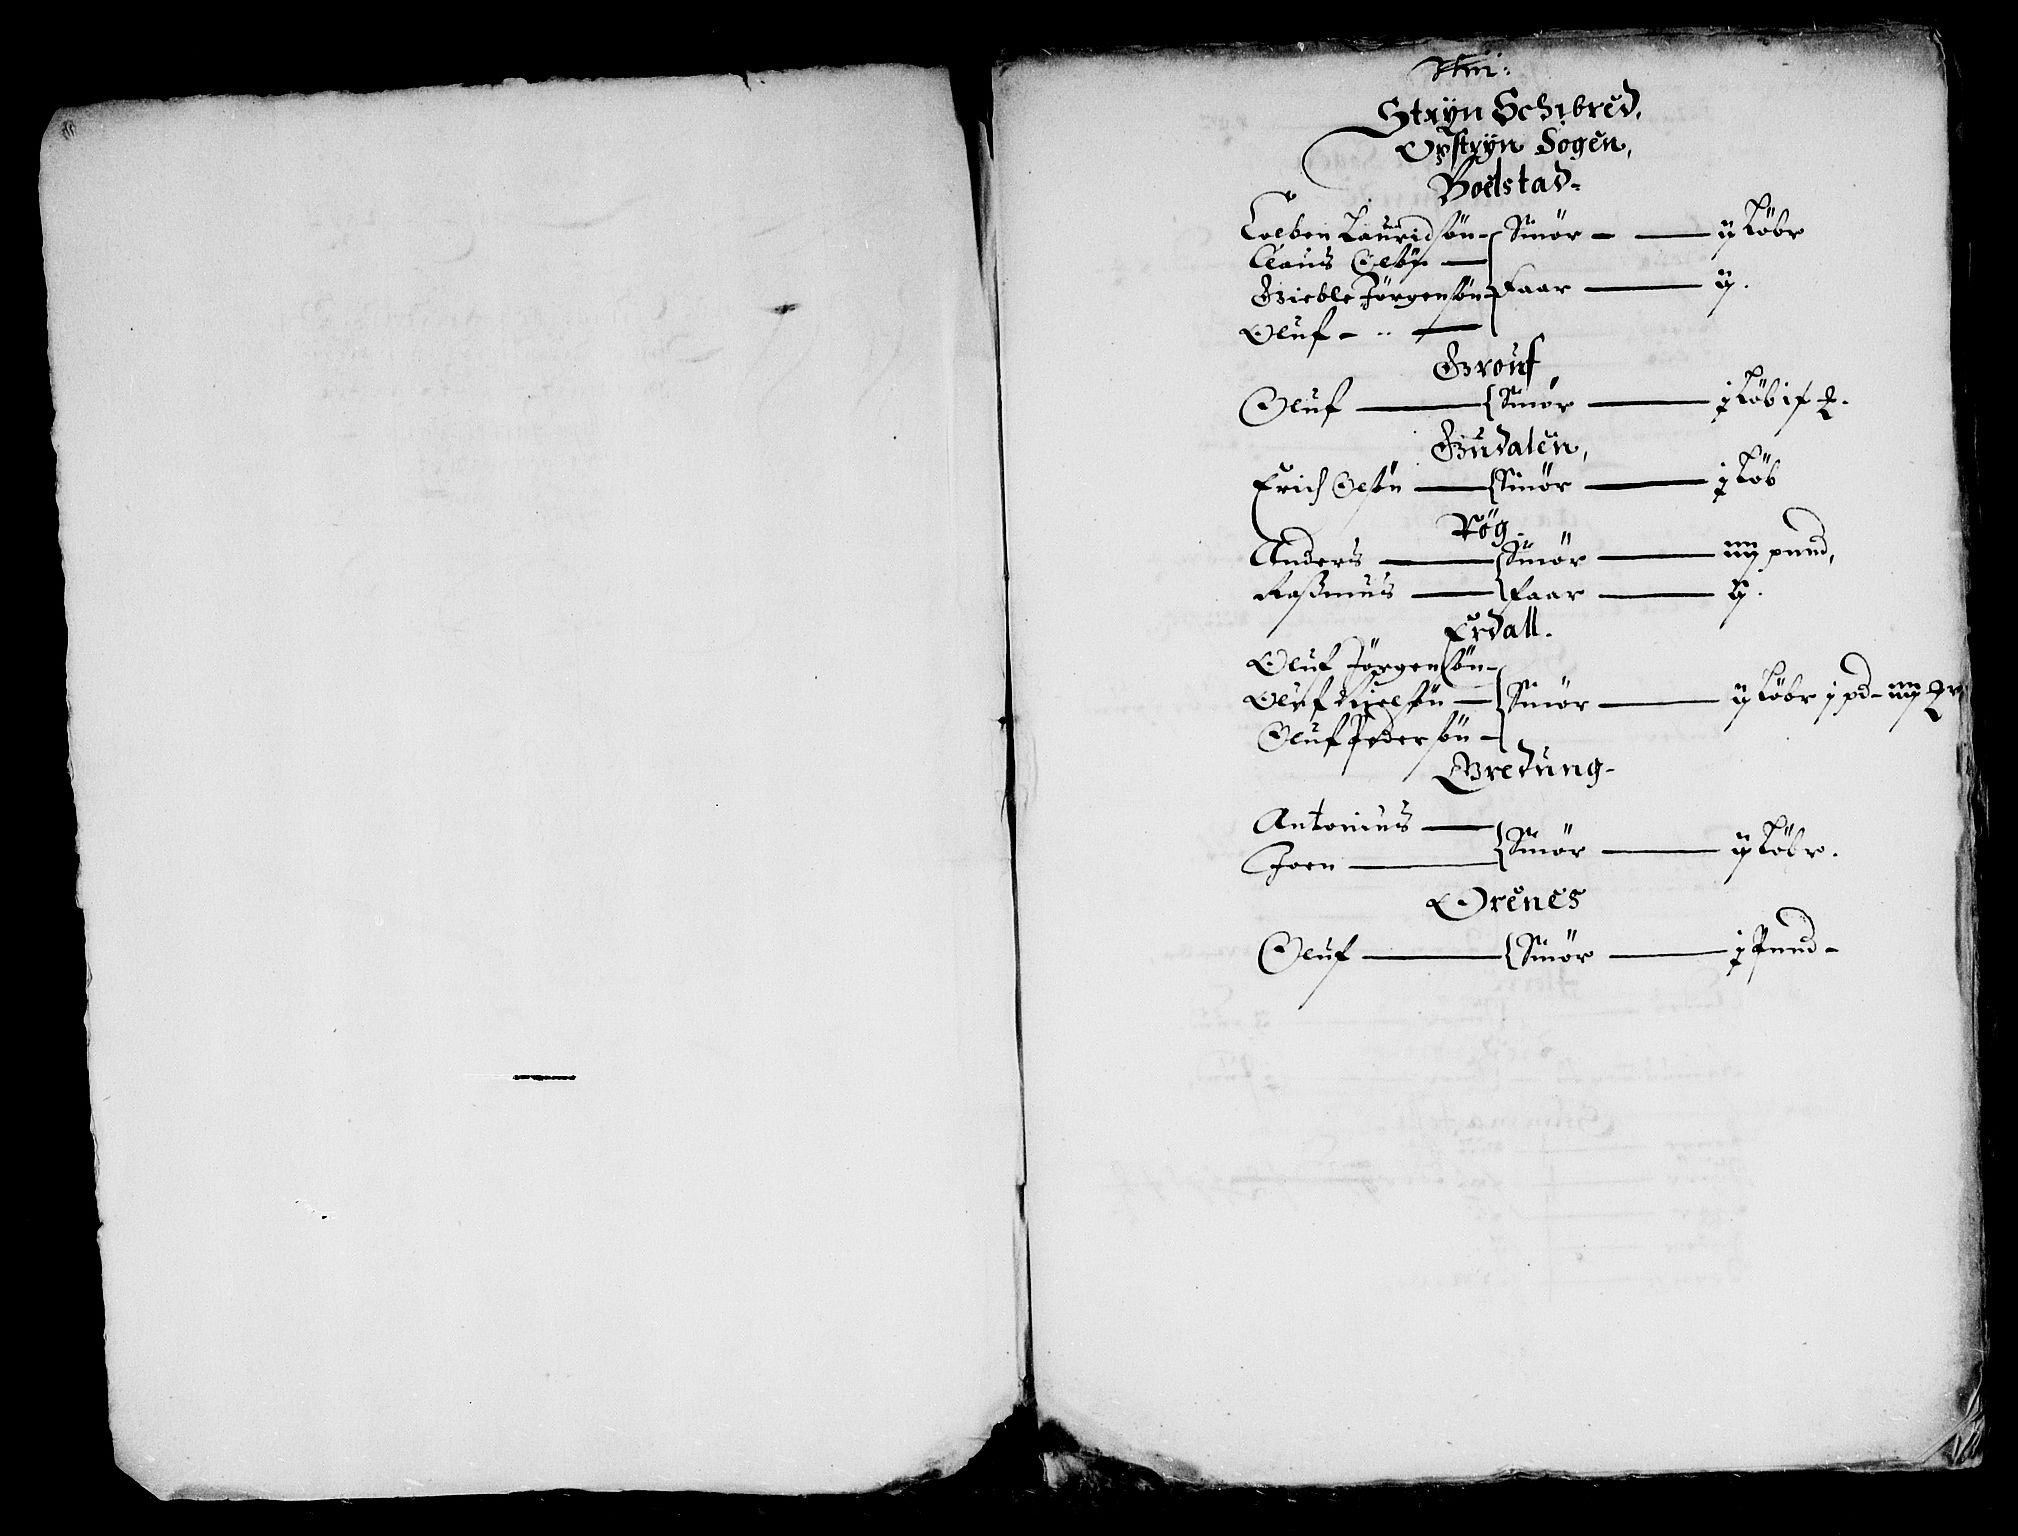 Stryn Schibred,
Opstryn Sogen,
Boelstad-
Colben Lauridsøn - Smør - — ij Løbr
Claus Olsøn —
Gieble Jørgensøn Faar — ij.
Oluf - —
Grouf
Oluf — Smør — j Løb
Gudalen,
Erich Olsøn — Smør — j Løb
Røg.
Anders — Smør — iiij pund,
Rasmus — Faar — ij.
Erdall.
Oluf Jørgensøn -
Oluf Nielsøn — Smør — ij Løbr j pd - iiij
Oluf Pedersøn -
Bredung-
Antonius —
Joen — Smør — ij Løbr.
Orenes
Oluf — Smør — j Pund-